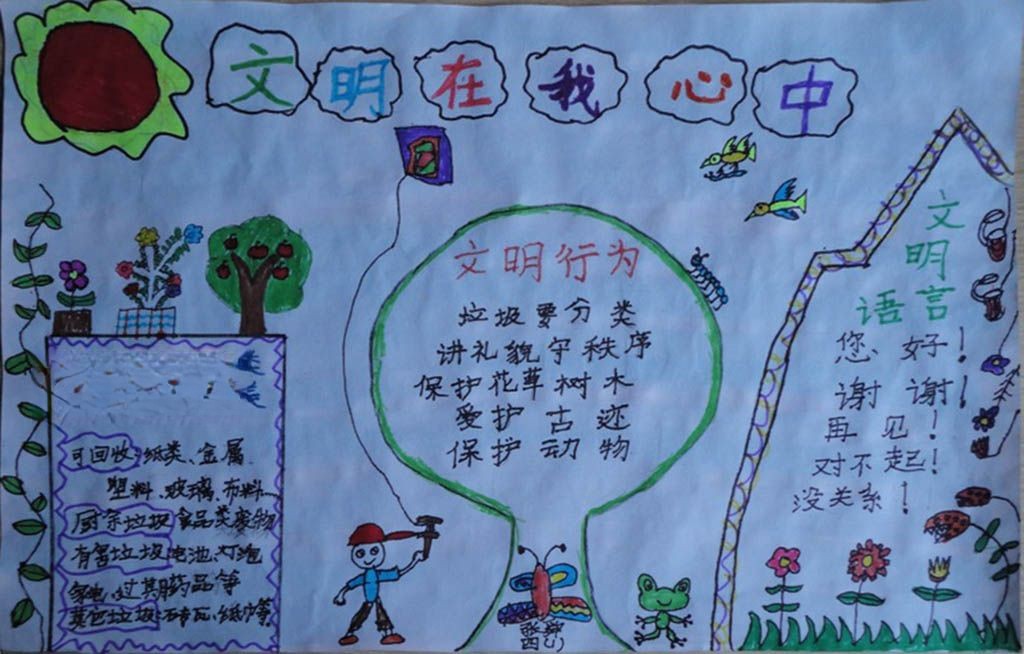 文明在我心中
可回收:纸类、金属
塑料、玻璃、布料…
厨余垃圾 食品类废物
有害垃圾 电池、灯泡
家电、过期药品等
垃圾: 瓦、纱等
文明行为
垃圾要分类
讲礼貌守秩序
保护花草树木
爱护古迹
保护动物
文
明
语言
您好!
谢谢!
再见!
对不起!
没关系!